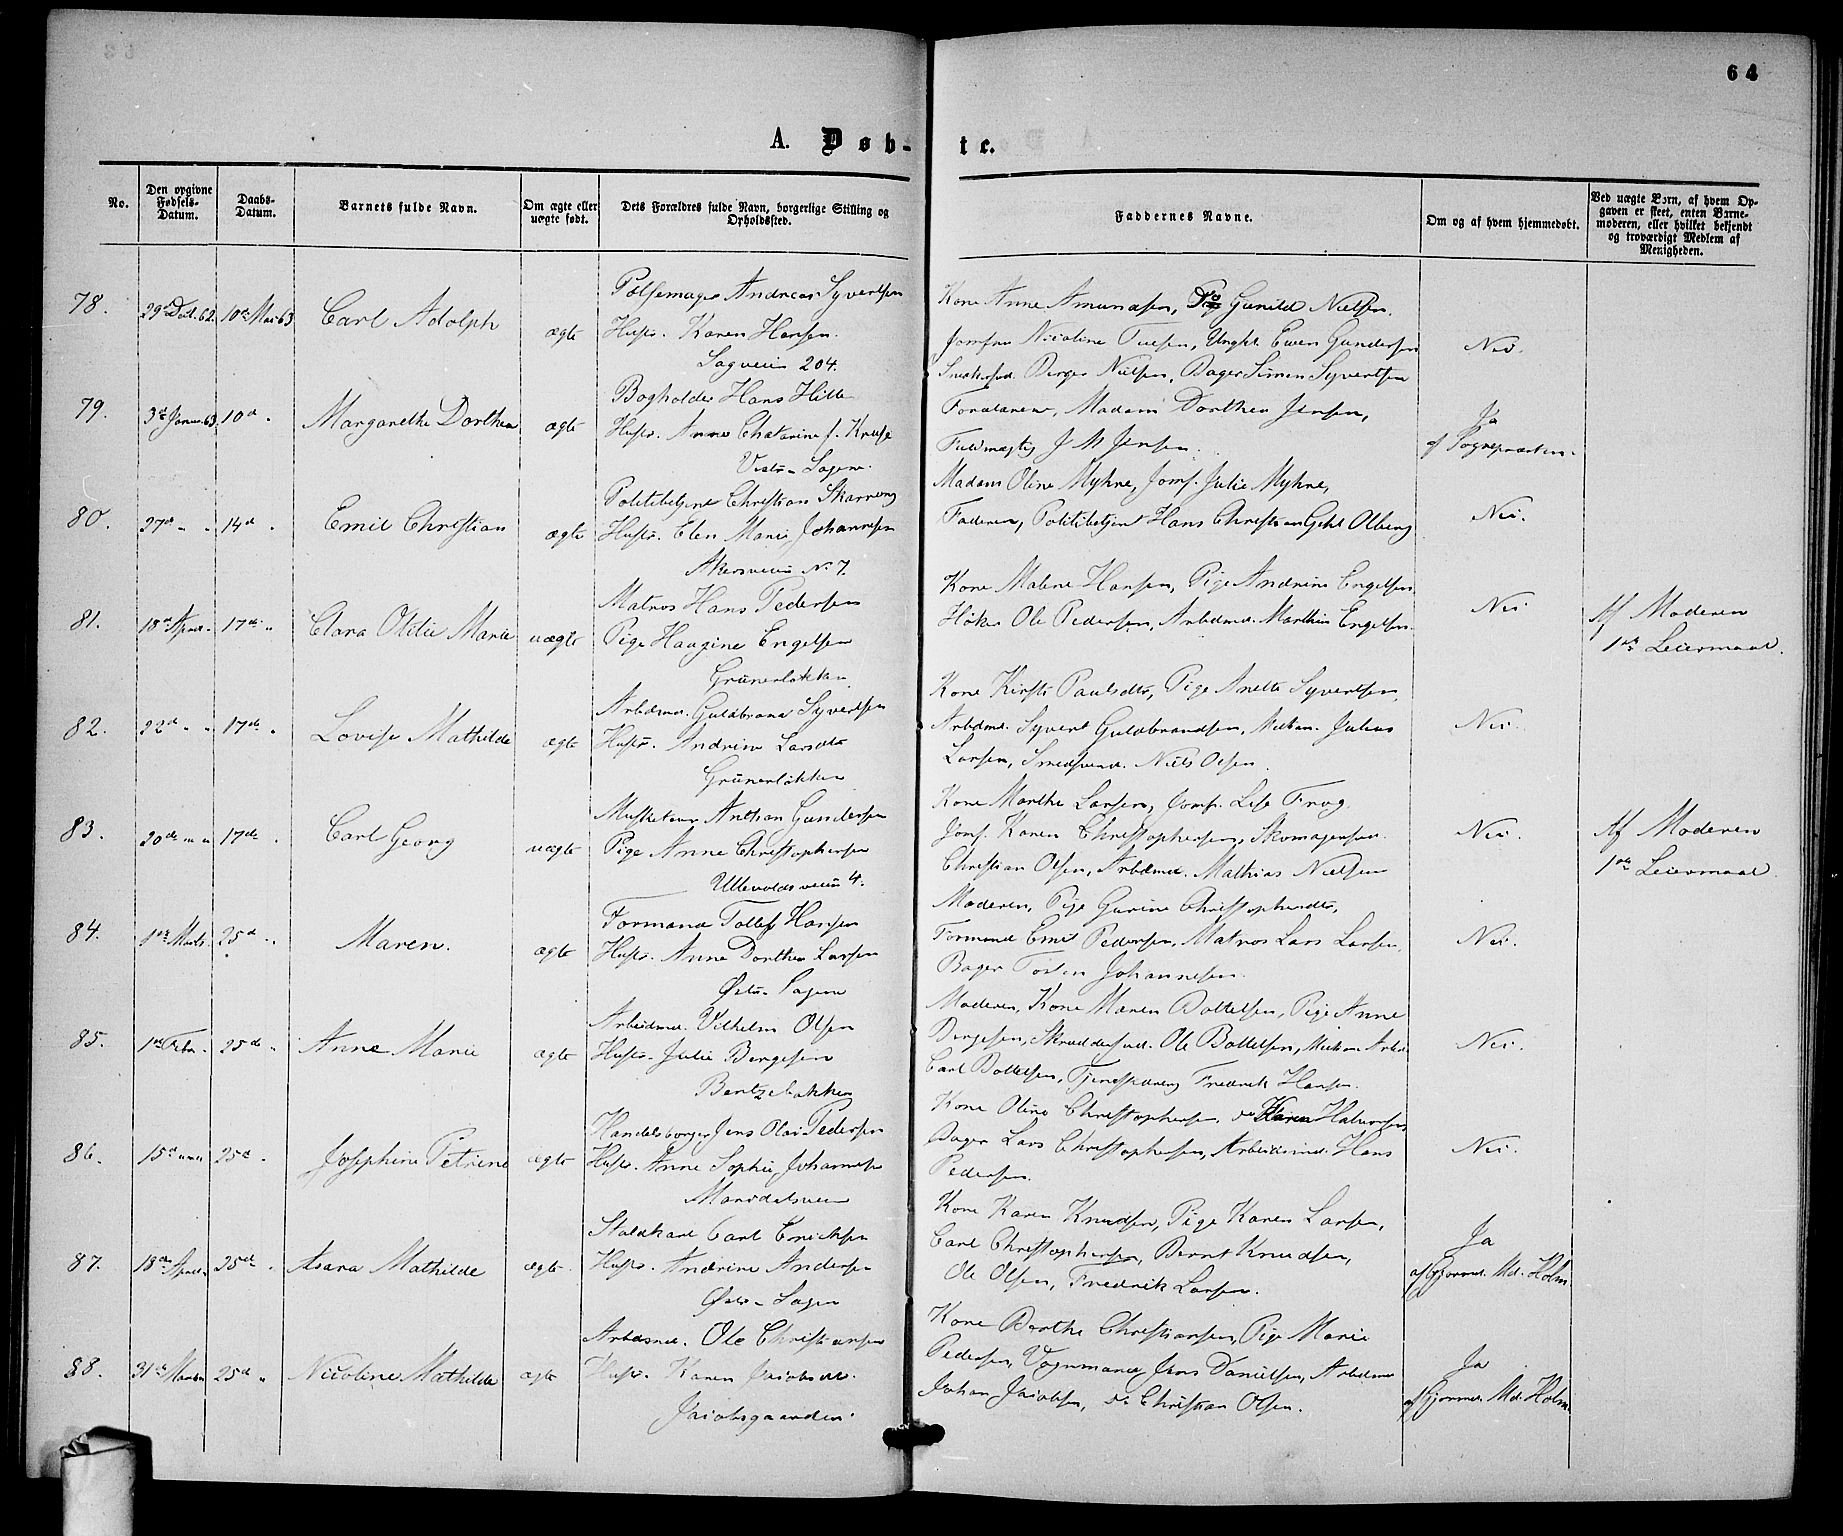 64
A. Døbte.
No.
Den opgivne Fødsels-Datum.
Daabs-Datum.
Barnets fulde Navn.
Om ægte eller uægte født.
Dets Forældres fulde Navn, borgerlige Stilling og Opholdssted.
Faddernes Navne.
Om og af hvem hjemmedøbt.
Ved uægte Børn, af hvem Opgaven er skeet, enten Barnemoderen, eller hvilket bekjendt og troværdigt Medlem af Menigheden.
78. 29de Dec. 62. 10de Mai 63 Carl Adolph ægte
Pølsemager Andreas Syvertsen
Hustr. Karen Hansen
Sagveien 204.
Kone Anne Amundsen, Do Gunild Nielsen.
Jomfru Nicoline Tuesen, Ungkl Even Gundersen
Snedkersvd. Berger Nielsen, Bager Simen Syvertsen
Nei.
79. 3de Januar 63. 10d . Margarethe Dorthea ægte
Bogholder Hans Hille
Hustr. Anne Chatarine f. Kruse
Vestre Sagene.
Forældrene, Madam Dorthea Jensen,
Fuldmægtig J M Jensen.
Ja
af Sognepræsten.
80. 27d " " 14d . Emil Christian ægte
Politibetjent Christian Skarveng
Hustr. Elen Marie Johannesen
Akersveien No 7.
Madam Oline Myhre, Jomf. Julie Myhre,
Faderen, Politibetjent Hans Christian Olberg
Nei.
81. 18de April. 17de " Clara Otilie Marie uægte
Matros Hans Pedersen
Pige Haagine Engelsen
Grünerløkken
Kone Malene Hansen, Pige Andrine Engelsen
Høker Ole Pedersen, Arbdmd. Marthin Engelsen.
Nei
Af Moderen
1ste Leiermaal.
82. 22d " " 17de . Lovise Mathilde ægte
Arbdmd. Guldbrand Syvertsen
Hustr. Andrine Larsdtr
Grünerløkken
Kone Kirsti Paulsdtr, Pige Anette Syvertsen,
Arbdmd. Syvert Guldbrandsen, Mekan. Julius
Larsen, Smedsvend. Niels Olsen.
Nei.
83. 20de " " 17de . Carl Georg uægte
Musketeer Anthon Gundersen
Pige Anne Christophersen
Ullevoldsveien 4.
Kone Marthe Larsen, Jomf. Lise Frog.
Jomf. Karen Christophersen, Skomagersvd.
Christian Olsen, Arbdmd. Mathias Nielsen
Nei.
Af Moderen
1ste Leiermaal.
84. 1ste Marts. 25d . Maren. ægte
Formand Tollef Hansen
Hustr. Anne Dorthea Larsen
Østre Sagene
Moderen, Pige Gurine Christophersdtr,
Formand Emil Pedersen, Matros Lars Larsen,
Bager Tosten Johannesen.
Nei.
85. 1ste Febr. 25de " Anne Marie ægte
Arbeidmd. Vilhelm Olsen
Hustr. Julie Bergesen
Bentzeløkken
Moderen, Kone Maren Bottelsen, Pige Anne
Bergesen, Skræddersvd. Ole Bottelsen, Mekan. Arb.
Carl Bottelsen, Tjenestdreng Fredrik Hansen.
Nei.
86. 15d " " 25d . Josephine Petrine ægte
Handelsborger Jens Olai Pedersen
Hustr. Anne Sophie Johannesen
Maridalsveien
Kone Oline Christophersen, do Karen Halvorsen,
Bager Lars Christophersen, Arbeidsmd. Hans
Pedersen.
Nei.
87. 18de April. 25de . Asara Mathilde ægte
Staldkarl Carl Erichsen
Hustr. Andrine Andersen
Østre Sagen
Kone Karen Knudsen, Pige Karen Larsen,
Carl Christophersen, Bernt Knudsen,
Ole Olsen, Fredrik Larsen.
Ja
af Gjormd. Md. Holm.
88. 31te Marts 25d " Nicoline Mathilde ægte
Arbdmd. Ole Christiansen
Hustr. Karen Jacobsdtr.
Jacobsgaarden.
Kone Berthe Christiansen, Pige Marie
Pedersen, Vognmand Jens Danielsen, Arbdmd
Johan Jacobsen, do Christian Olsen.
Ja
af Gjormd. Md. Holm.